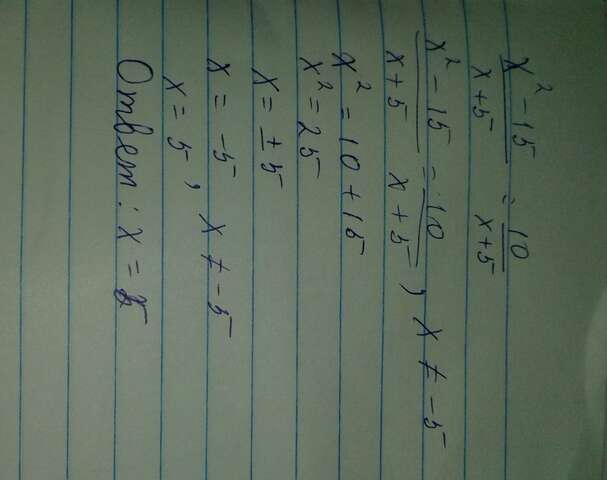 x² - 15 / x + 5 = 10 / x + 5
x² - 15 / x + 5 = 10 / x + 5, x ≠ -5
x² = 10 + 15
x² = 25
x = ±5
x = -5, x ≠ -5
x = 5
Ответ: x = 5